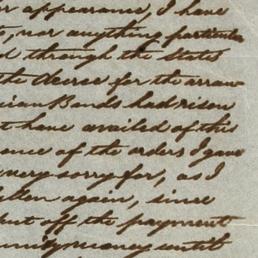 r appearance, I have
, nor anything particular
d through the States
the decree for the arran
ican Bonds had risen
t have availed of this
ence of the orders I gave
very sorry for, as I
tten again, since
put off the payment
money until